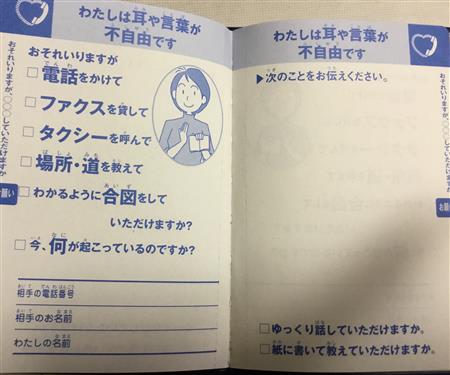 わたしは耳や言葉が
不自由です
おそれいりますが
□電話をかけて
□ファクスを貸して
□タクシーを呼んで
□場所・道を教えて
□わかるように合図をして
いただけますか?
□今、何が起こっているのですか?
相手の電話番号
相手のお名前
わたしの名前
おそれいりますが、○○○していただけますか
お願い
わたしは耳や言葉が
不自由です
▶次のことをお伝えください。
□ゆっくり話していただけますか。
□紙に書いて教えていただけますか。
おそれいりますが、○○○していただけますか
お願